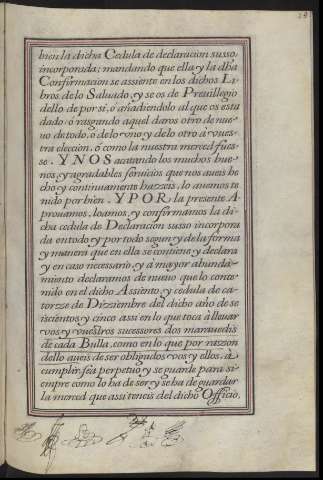 bien la dicha Cedula de declaracion susso
incorporada; mandando que ella y la dha
Confirmacion se assiente en los dichos Li
bros de lo Saluado, y se os de Preuillegio
dello de por si, ó añadiendolo al que os esta
dado: ó rasgando aquel daros otro de nue
uo de todo, o de lo vno y de lo otro à vues
tra eleccion, ó como la nuestra merced fues
se. Y NOS acatando los muchos bue
nos, y agradables seruicios que nos aueis he
cho y continuamente hazeis, lo auemos te
nido por bien. Y POR, la presente A
prouamos, loamos, y confirmamos la di
cha cedula de Declaracion susso incorpora
da en todo y por todo segun y de la forma
y manera que en ella se contiene y declara
y en caso necessario, y á mayor abunda
miento declaramos de nueuo que lo conte
nido en el dicho Assiento, y cedula de ca
torzze de Dizziembre del dicho año de se
iscientos y cinco assi en lo que toca à lleuar
vos y vuestros sucessores dos marauedis
de cada Bulla, como en lo que por razon
dello aueis de ser obligados vos y ellos, á
cumplir sea perpetuo y se guarde para si
empre como lo ha de ser, y se ha de guardar
la merced que assi teneis del dicho Officio,